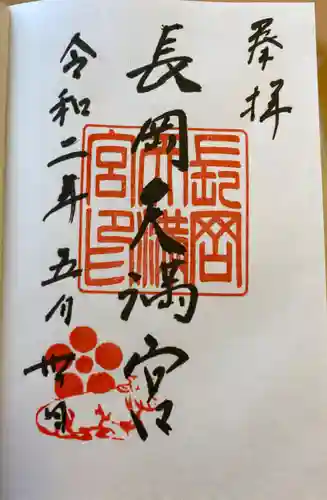 奉拝
長岡天満宮
令和二年五月廿日
長岡天満宮印